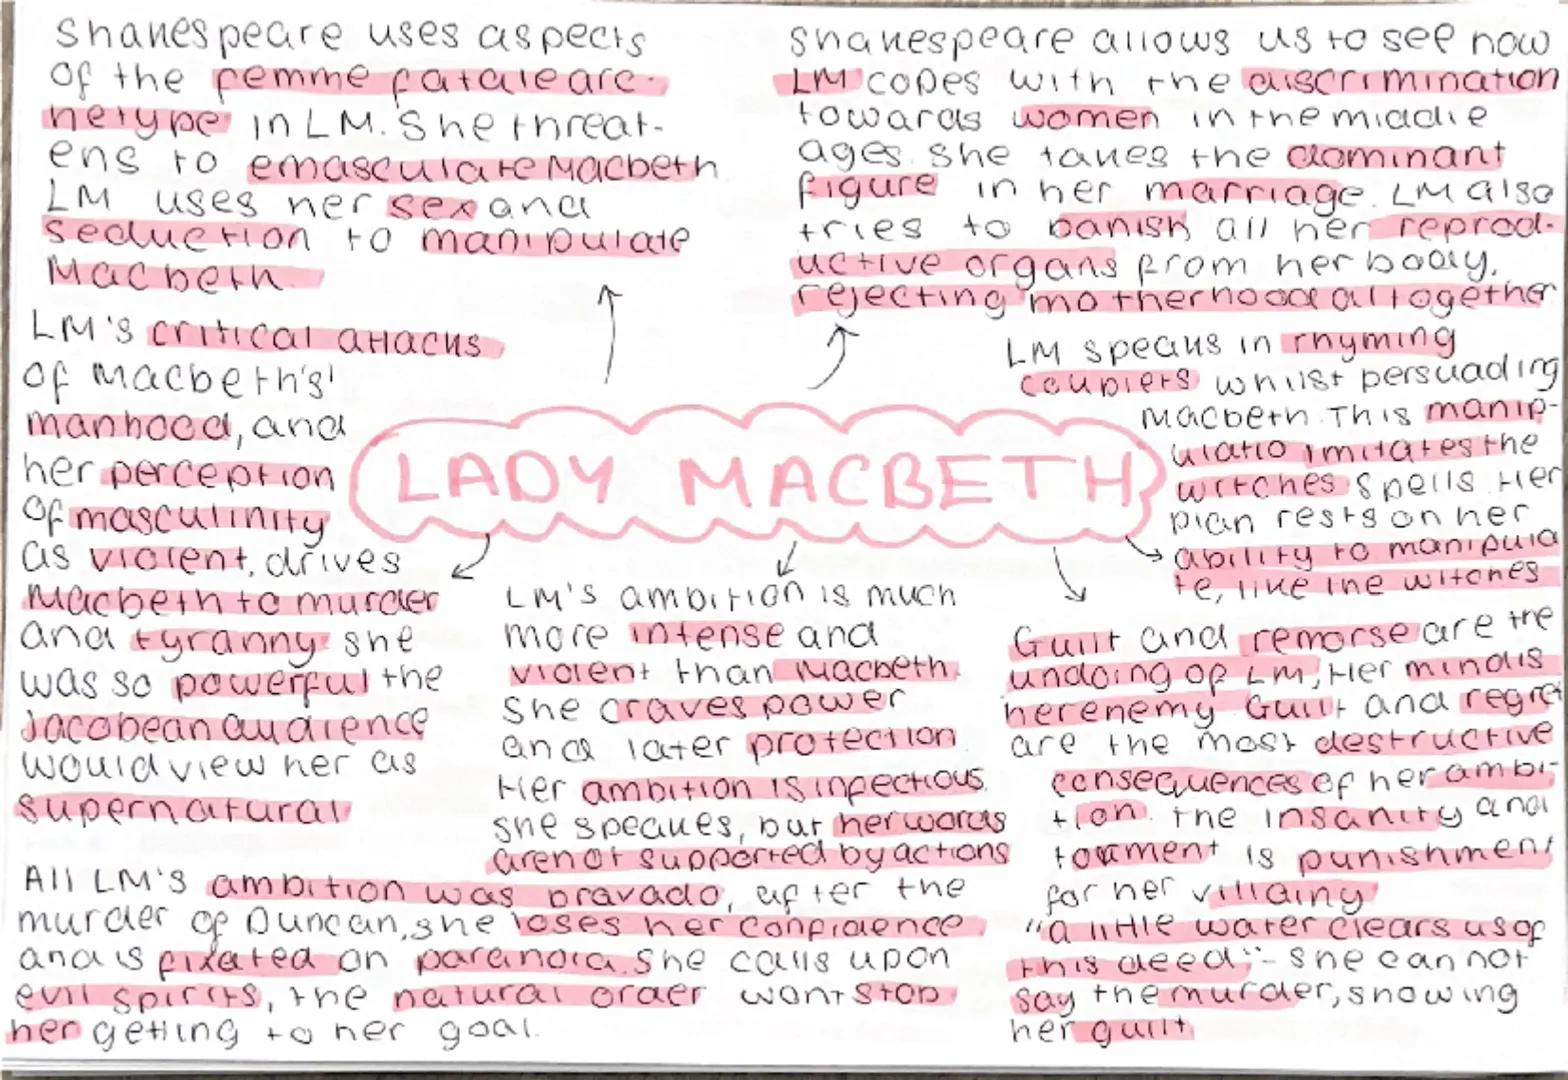 Shakespeare uses aspects
of the femme fatale arc-
hetype in LM. She threat-
ens to emasculate Macbeth
LM uses her sex and
seduction to manipulate
Macbeth.
Shakespeare allows us to see how
LM copes with the discrimination
towards women in the middle
ages. She takes the dominant
figure in her marriage. LM also
tries to banish all her reprod-
uctive organs from her body,
rejecting motherhood altogether
LM's critical attacks
of Macbeth's'
manhood, and
her perception
of masculinity
as violent, drives
Macbeth to murder
and tyranny she
was so powerful the
Jacobean audience
would view her as
supernatural
LADY MACBETH
LM speaks in rhyming
couplets whilst persuading
Macbeth. This manip-
ulatio imitates the
witches spells. Her
plan rests on her
ability to manipula
te, like the witches
LM's ambition is much
more intense and
violent than Macbeth.
She craves power
and later protection.
Her ambition is infectious.
she speakes, but her words
are not supported by actions
Guilt and remorse are the
undoing of LM, Her mind is
her enemy. Guilt and regre
are the most destructive
consequences of her ambi-
tion. The insanity and
torment is punishment
for her villainy
"a little water clears us of
this deed" - she cannot
say the murder, showing
her guilt
All LM's ambition was bravado, after the
murder of Duncan, she loses her confidence
and is fixated on paranoia. She calls upon
evil spirits, the natural order wont stop
her getting to her goal.